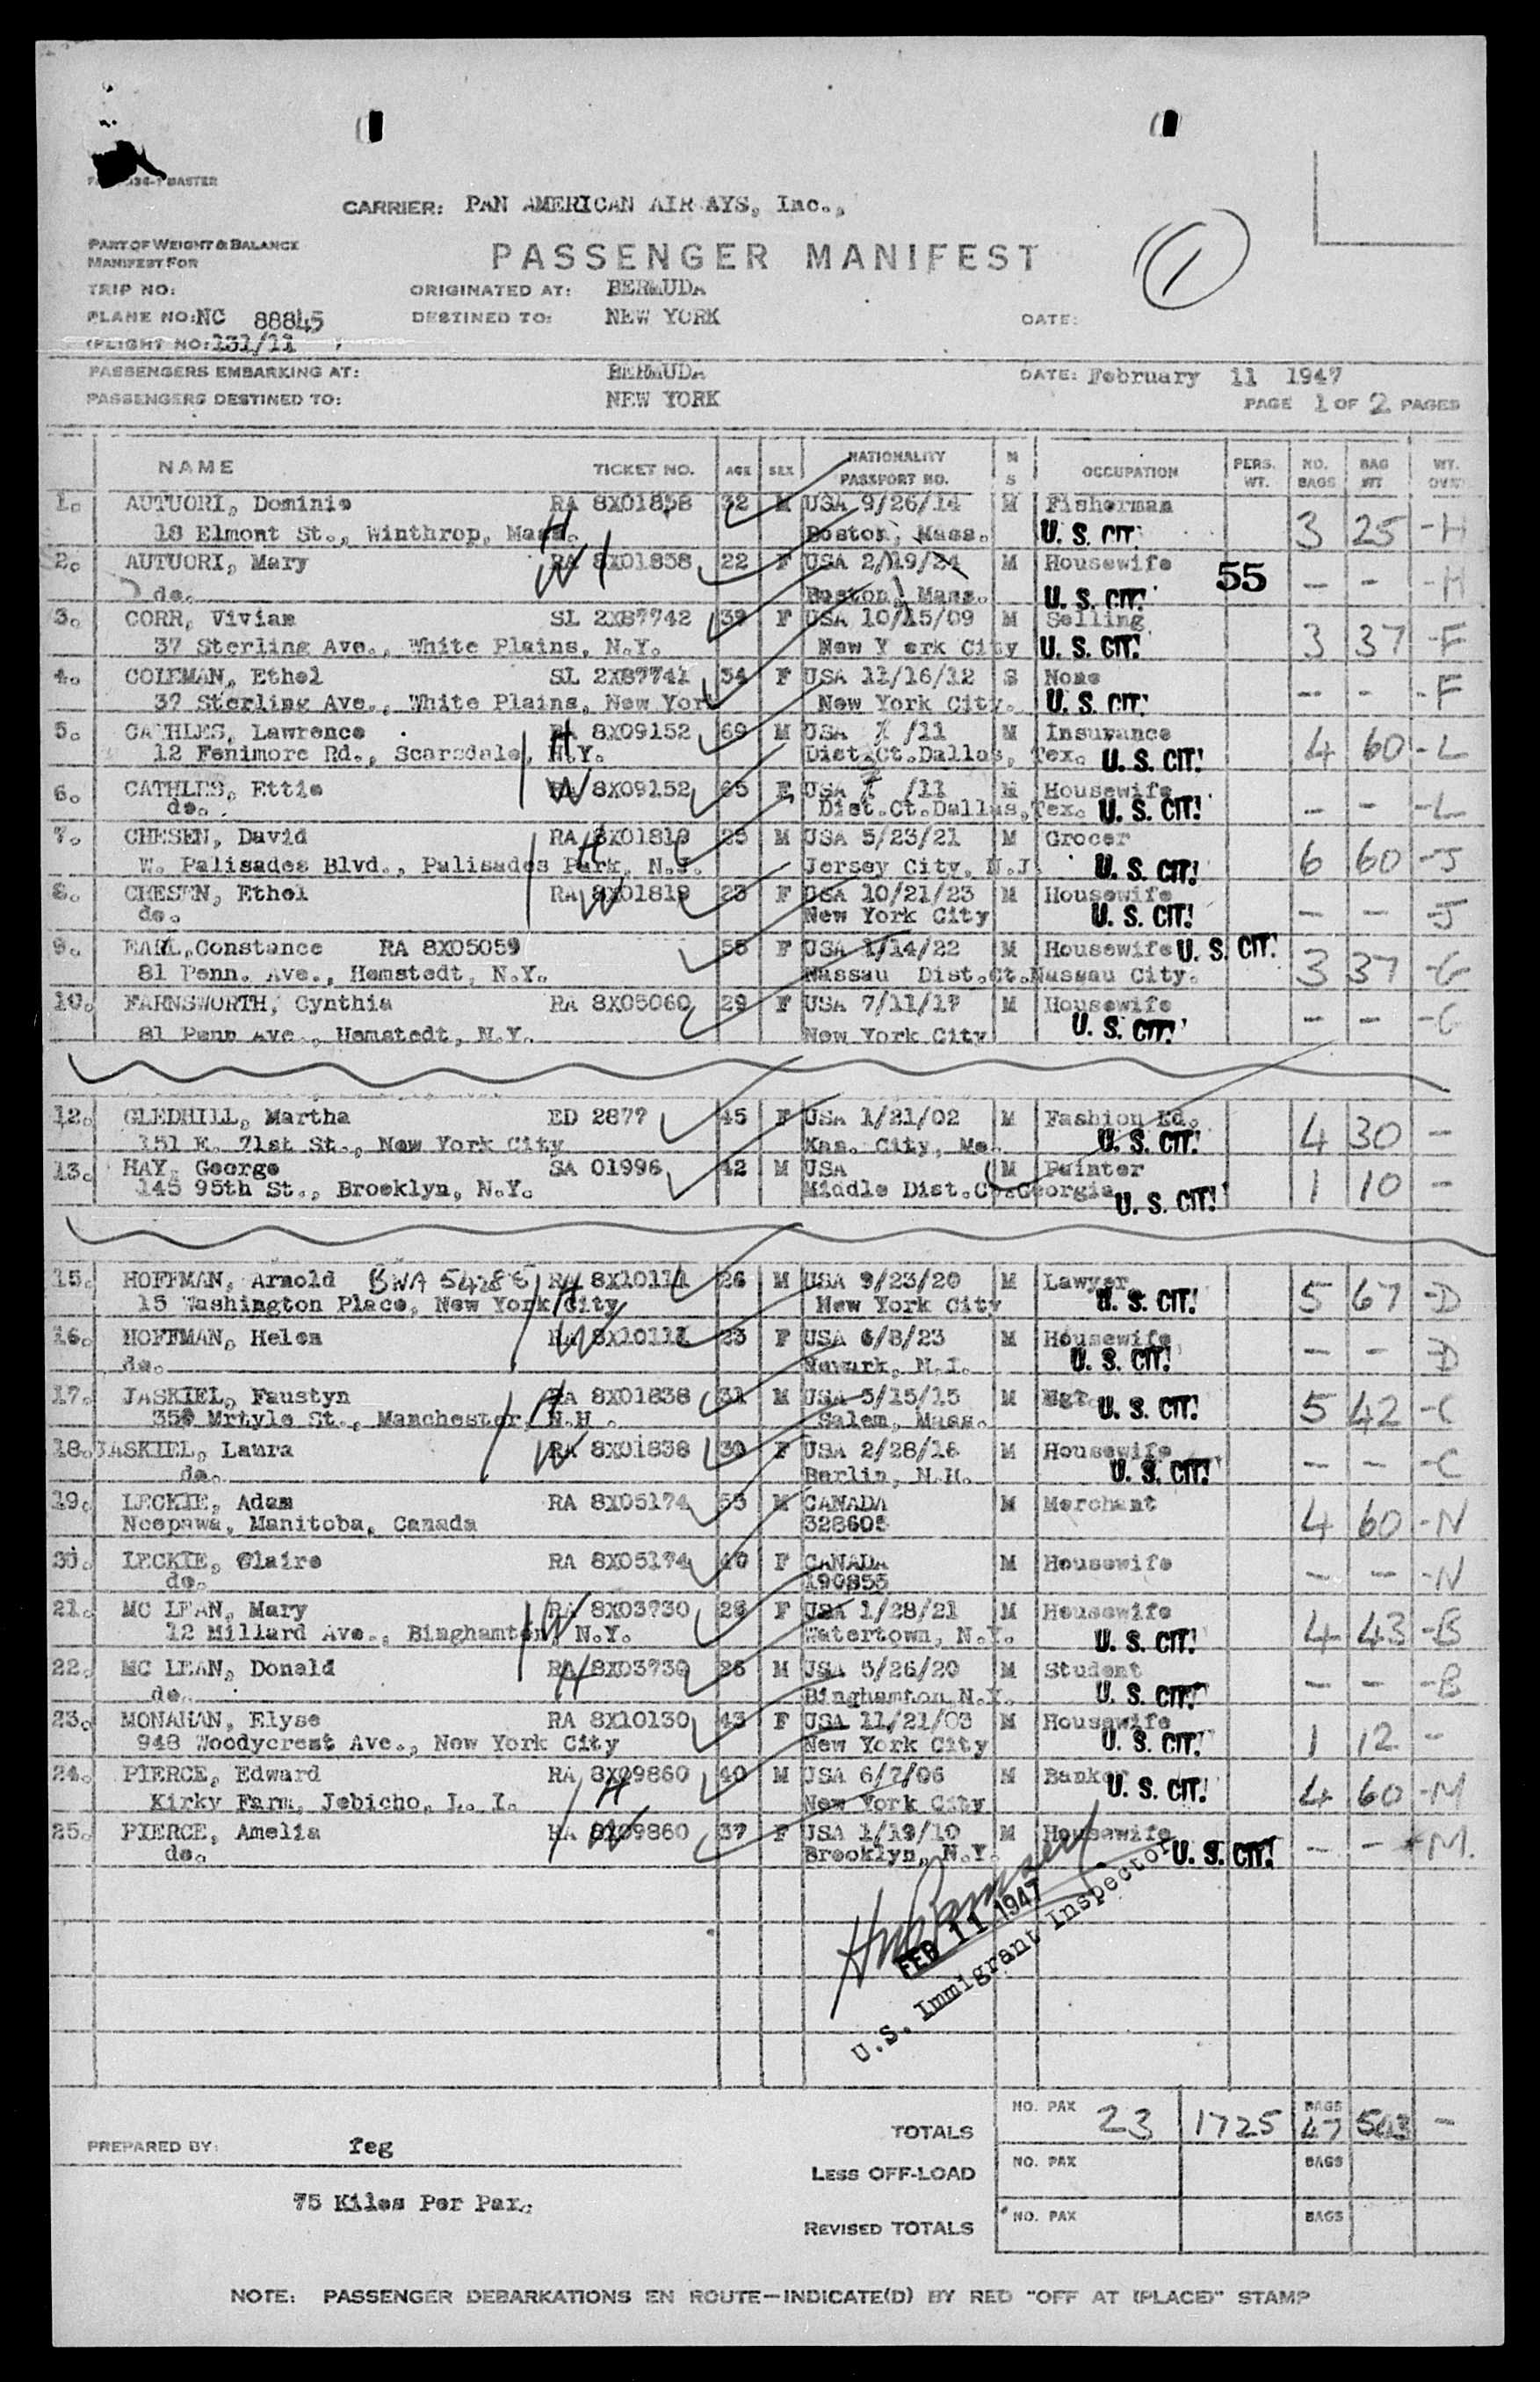 MASTER
CARRIER: PAN AMERICAN AIR AYS, Inc.,
PART OF WEIGHT & BALANCE
MANIFEST FOR
PASSENGER MANIFEST
1
TRIP NO: ORIGINATED AT: BERMUDA
PLANE NO: NC 88845 DESTINED TO: NEW YORK DATE:
FLIGHT NO: 131/11
PASSENGERS EMBARKING AT: BERMUDA DATE: February 11 1947
PASSENGERS DESTINED TO: NEW YORK PAGE 1 OF 2 PAGES
NAME TICKET NO. AGE SEX NATIONALITY PASSPORT NO. M S OCCUPATION PERS. WT. NO. BAGS BAG WT WT. OVER
1. AUTUORI, Dominic RA 8X01858 32 M USA 9/26/14 M Fisherman
18 Elmont St., Winthrop, Mass. H Boston, Mass. U. S. CIT. 3 25 -H
2. AUTUORI, Mary RA 8X01858 W 22 F USA 2/19/24 M Housewife 55
do. Boston, Mass. U. S. CIT. - - -H
3. CORR, Vivian SL 2X87742 39 F USA 10/15/09 M Selling
37 Sterling Ave., White Plains, N.Y. New Y ork City U. S. CIT. 3 37 -F
4. COLEMAN, Ethel SL 2X87741 34 F USA 11/16/12 S None
37 Sterling Ave., White Plains, New Yor New York City. U. S. CIT. -- - -F
5. CATHLES, Lawrence RA 8X09152 69 M USA /11 M Insurance
12 Fenimore Rd., Scarsdale, N.Y. H Dist.Ct.Dallas, Tex. U. S. CIT. 4 60 -L
6. CATHLES, Ettie RA 8X09152 W 65 F USA /11 M Housewife
do. Dist.Ct.Dallas,Tex. U. S. CIT. - - -L
7. CHESEN, David RA 8X01819 25 M USA 5/23/21 M Grocer
W. Palisades Blvd., Palisades Park, N.J. H Jersey City, N.J. U. S. CIT. 6 60 -J
8. CHESEN, Ethel RA 8X01819 W 23 F USA 10/21/23 M Housewife
do. New York City U. S. CIT. - - -J
9. EARL,Constance RA 8X05059 55 F USA 1/14/22 M Housewife U. S. CIT.
81 Penn. Ave., Hemstedt, N.Y. Nassau Dist.Ct.Nassau City. 3 37 -G
10. FARNSWORTH, Cynthia RA 8X05060 29 F USA 7/11/17 M Housewife
81 Penn Ave., Hemstedt, N.Y. New York City U. S. CIT. - - -G
12. GLEDHILL, Martha ED 2877 45 F USA 1/21/02 M Fashion Ed.
151 E. 71st St., New York City Kas. City, Mo. U. S. CIT. 4 30 -
13. HAY, George SA 01996 42 M USA M Painter
145 95th St., Brooklyn, N.Y. Middle Dist.Ct.Georgia U. S. CIT. 1 10 -
15. HOFFMAN, Arnold RA 8X10111 26 M USA 9/23/20 M Lawyer
15 Washington Place, New York City H New York City U. S. CIT. 5 67 -D
16. HOFFMAN, Helen RA 8X10111 W 23 F USA 6/8/23 M Housewife
do. Newark, N.J. U. S. CIT. - - -D
17. JASKIEL, Faustyn RA 8X01838 H 31 M USA 5/15/15 M Mgr. U. S. CIT.
Mrtyle St., Manchester, N.H. Salem, Mass. 5 42 -C
18. JASKIEL, Laura RA 8X01838 W 30 F USA 2/28/16 M Housewife
do. Berlin, N.H. U. S. CIT. - - -C
19. LECKIE, Adam RA 8X05174 53 M CANADA M Merchant
Neepawa, Manitoba, Canada 328605 4 60 -N
20. LECKIE, Claire RA 8X05174 40 F CANADA M Housewife
do. 190855 - - -N
21. MC LEAN, Mary RA 8X03730 W 26 F USA 1/28/21 M Housewife
12 Millard Ave., Binghamton, N.Y. Watertown, N.Y. U. S. CIT. 4 43 -B
22. MC LEAN, Donald RA 8X03730 H 26 M USA 5/26/20 M Student
do. Binghamton,N.Y. U. S. CIT. - - -B
23. MONAHAN, Elyse RA 8X10130 43 F USA 11/21/03 M Housewife
948 Woodycrest Ave., New York City New York City U. S. CIT. 1 12 -
24. PIERCE, Edward RA 8X09860 H 40 M USA 6/7/06 M Banker U. S. CIT.
Kirky Farm, Jebicho, L. I. New York City 4 60 -M
25. PIERCE, Amelia RA 8X09860 W 37 F USA 1/19/10 M Housewife
do. Brooklyn, N.Y. U. S. CIT. - - -M.
FEB 11 1947
U.S. Immigrant Inspector
TOTALS NO. PAX 23 1725 BAGS 47 543 -
PREPARED BY: feg
LESS OFF-LOAD NO. PAX BAGS
75 Kilos Per Pax.
REVISED TOTALS NO. PAX BAGS
NOTE: PASSENGER DEBARKATIONS EN ROUTE—INDICATE(D) BY RED "OFF AT (PLACE)" STAMP